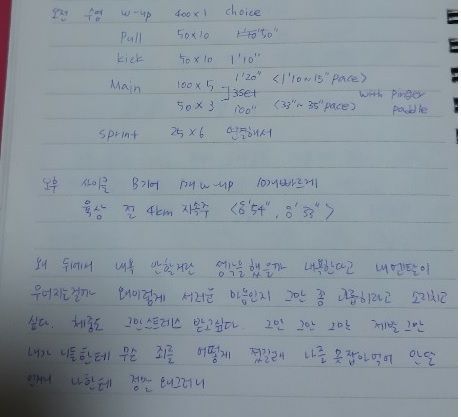 오전 수영 w-up 400x1 choice
Pull 50x10 50"
kick 50x10 1'10"
Main 100x5 1'20" <1'10~15" pace>
3set with finger
50x3 100" <33"~35" pace> paddle
Sprint 25x6 연결해서
오후 사이클 B기어 1개 w-up 10개빠르게
육상 전 4km 지속주 <6'54", 6'33">
왜 뒤에서 내복 안할거란 생각을했을까 내복한다고 내멘탈이
무너지는걸까 왜이렇게 서러운 마음인지 그만 좀 괴롭히라고 소리치고
싶다. 체중도 그만스트레스 받고싶다. 그만 그만 그만 제발 그만
내가 니들한테 무슨 죄를 어떻게 졌길래 나를 못잡아먹어 안달
인거니 나한테 정말 왜그러니